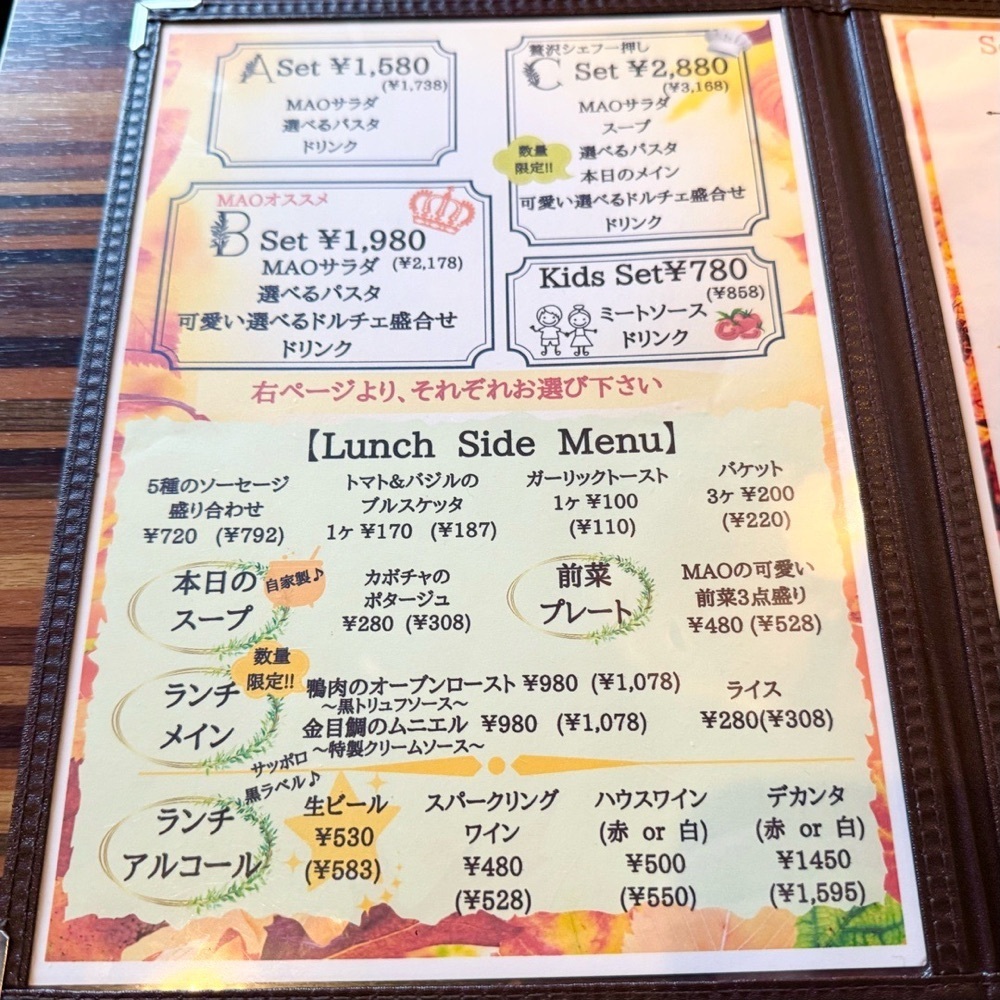 A Set ¥1,580
(¥1,738)
MAOサラダ
選べるパスタ
ドリンク
MAOオススメ
B Set ¥1,980
MAOサラダ (¥2,178)
選べるパスタ
可愛い選べるドルチェ盛合せ
ドリンク
贅沢シェフ一押し
C Set ¥2,880
(¥3,168)
MAOサラダ
スープ
数量
限定!!
選べるパスタ
本日のメイン
可愛い選べるドルチェ盛合せ
ドリンク
Kids Set¥780
(¥858)
ミートソース
ドリンク
右ページより、それぞれお選び下さい
【Lunch Side Menu】
5種のソーセージ
盛り合わせ
¥720 (¥792)
トマト&バジルの
ブルスケッタ
1ヶ ¥170 (¥187)
ガーリックトースト
1ヶ ¥100
(¥110)
バケット
3ヶ ¥200
(¥220)
本日の
スープ
自家製♪
カボチャの
ポタージュ
¥280 (¥308)
前菜
プレート
MAOの可愛い
前菜3点盛り
¥480 (¥528)
ランチ
メイン
数量
限定!!
鴨肉のオーブンロースト ¥980 (¥1,078)
～黒トリュフソース～
金目鯛のムニエル ¥980 (¥1,078)
～特製クリームソース～
ライス
¥280(¥308)
ランチ
アルコール
サッポロ
黒ラベル♪
生ビール
¥530
(¥583)
スパークリング
ワイン
¥480
(¥528)
ハウスワイン
(赤 or 白)
¥500
(¥550)
デカンタ
(赤 or 白)
¥1450
(¥1,595)